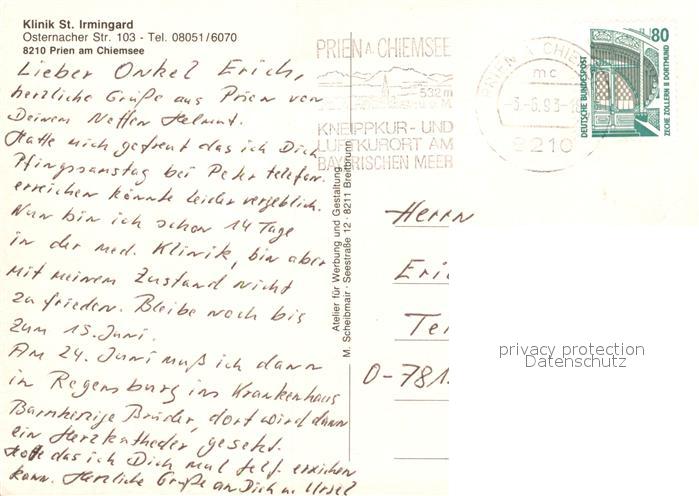 Klinik St. Irmingard
Osternacher Str. 103 - Tel. 08051/6070
8210 Prien am Chiemsee
Lieber Onkel Erich,
herzliche Grüße aus Prien von
Deinem Neffen Helmut.
Hatte mich gefreut das ich Dich
Pfingssamstag bei Peter telefon.
erreichen könnte leider vergeblich.
Nun bin ich schon 14 Tage
in der med. Klinik, bin aber
mit meinem Zustand nicht
zufrieden. Bleibe noch bis
zum 15. Juni.
Am 24. Juni muß ich dann
in Regensburg ins Krankenhaus
Barmherzige Brüder, dort wird dann
ein Herzkatheder gesetzt.
Hoffe das ich Dich mal telf. erreichen
kann. Herzliche Grüße an Dich u. Ursel
Atelier für Werbung und Gestaltung
M. Scheibmair · Seestraße 12 · 8211 Breitbrunn
PRIEN A. CHIEMSEE
532m
KNEIPPKUR - UND
LUFTKURORT AM
BAYERISCHEN MEER
PRIEN A CHIE
mc
-3.-6.93-
8210
80
DEUTSCHE BUNDESPOST
ZECHE ZOLLERN II DORTMUND
Herrn
Eri
Te
O-781
privacy protection
Datenschutz